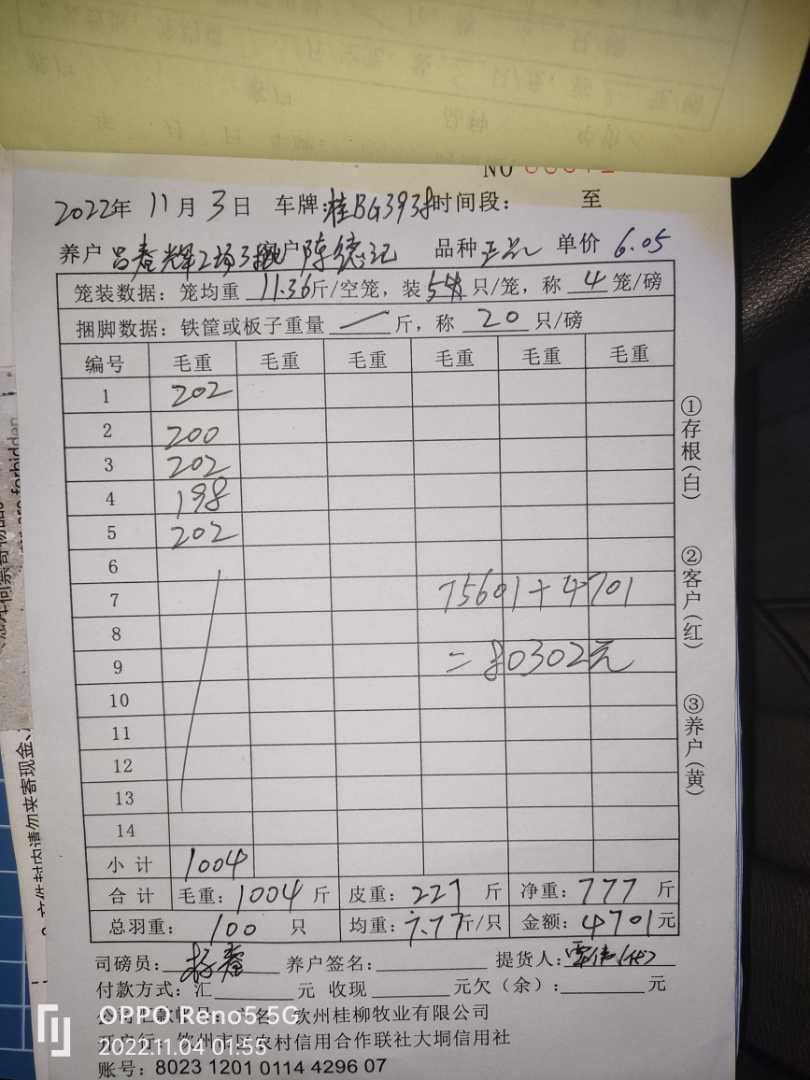 NO
2022年 11月 3日 车牌:桂BG393 时间段: 至
养户 吕春辉工场3 户 陈德记 品种 正品 单价 6.05
笼装数据：笼均重 11.36斤/空笼，装 5 只/笼，称 4 笼/磅
捆脚数据：铁筐或板子重量 — 斤，称 20 只/磅
编号 毛重 毛重 毛重 毛重 毛重 毛重
1 202
2 200
3 202
4 198
5 202
6
7 75601+4701
8
9 =80302元
10
11
12
13
14
小计 1004
合计 毛重：1004斤 皮重：227斤 净重：777斤
总羽重：100只 均重：7.77斤/只 金额：4701元
司磅员： 杨春 养户签名： 提货人：
付款方式：汇 元 收现 元欠（余）： 元
钦州桂柳牧业有限公司
钦州市区农村信用合作联社大垌信用社
账号：8023 1201 0114 4296 07
①存根(白)
②客户(红)
③养户(黄)
OPPO Reno5 5G
2022.11.04 01:55